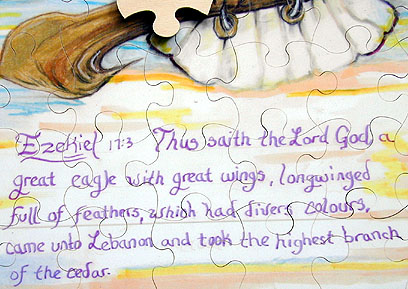 Ezekiel 17:3 Thus saith the Lord God, a
great eagle with great wings, longwinged
full of feathers, which had divers colours,
came unto Lebanon and took the highest branch
of the cedar.